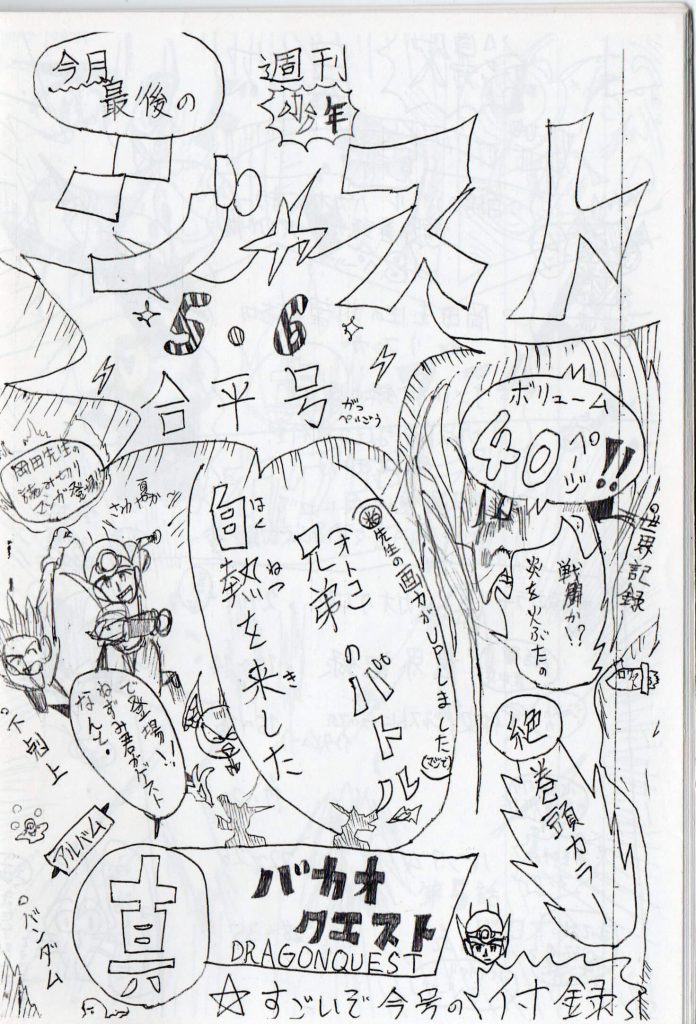 今月
最後の
週刊
少年
ジャスト
5・6
合平号
がっぺいごう
ボリューム
40ページ!!
世界記録
戦闘か!?
火を火ぶたの
絶
巻頭カラ
岡田先生の
読み切り
マンガ登場!!
さわやか
先生の画力がUPしました(マジで)
兄弟のバトル
(オトコ)
白熱を来した
はく
ねつ
き
なんと、
ねずみ君がゲスト
で登場!!
下剋上
アルバム
バンダム
真
バカオ
クエスト
DRAGONQUEST
☆すごいぞ今号の付録